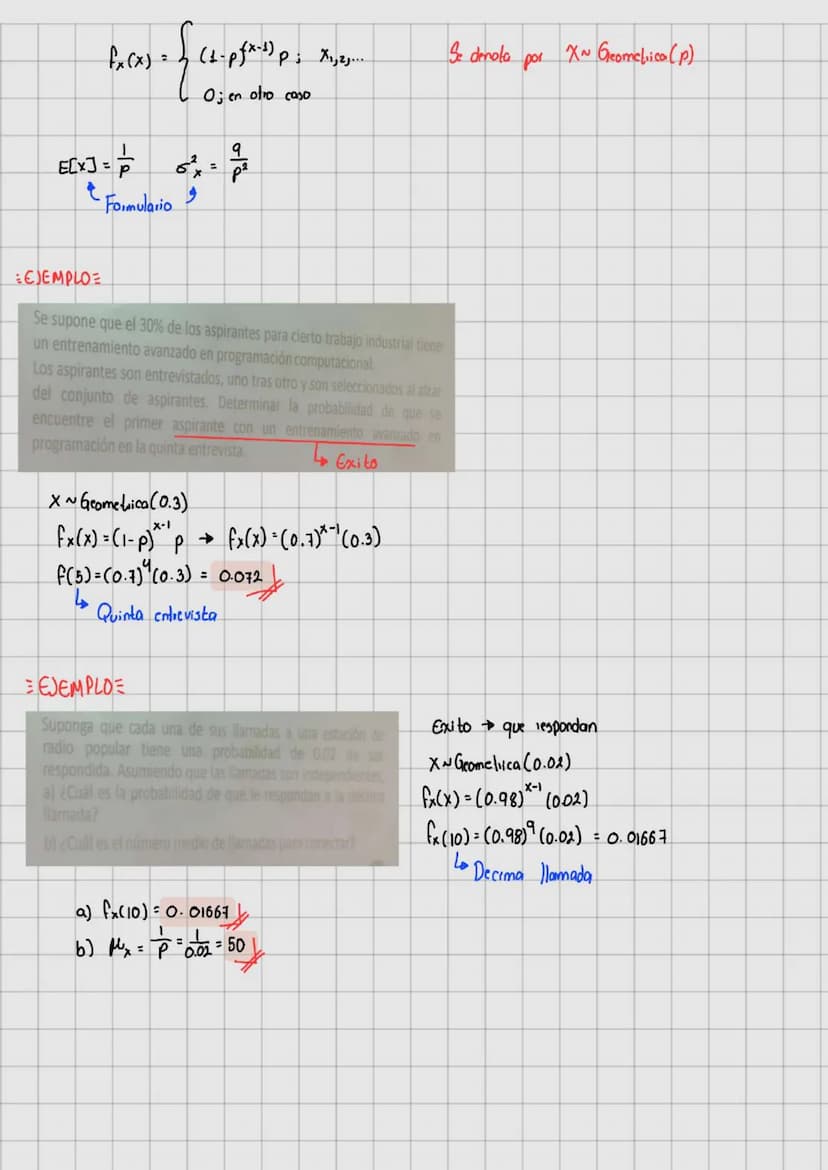 fx(x) = { (1-p)^(x-1) p ; x1,2,...
0; en otro caso
Se denota por X~Geometrica(p)
E[x] = 1/p σ²x = q/p²
Formulario
=EJEMPLO=
Se supone que el 30% de los aspirantes para cierto trabajo industrial tiene
un entrenamiento avanzado en programación computacional.
Los aspirantes son entrevistados, uno tras otro y son seleccionados al azar
del conjunto de aspirantes. Determinar la probabilidad de que se
encuentre el primer aspirante con un entrenamiento avanzado en
programación en la quinta entrevista.
↳ Exito
X~Geometrica(0.3)
fx(x) = (1-p)^x-1 p → fx(x) = (0.7)^x-1 (0.3)
f(5) = (0.7)^4 (0.3) = 0.072
↳ Quinta entrevista
=EJEMPLO=
Suponga que cada una de sus llamadas a una estación de
radio popular tiene una probabilidad de 0.02 de ser
respondida. Asumiendo que las llamadas son independientes,
a) ¿Cuál es la probabilidad de que le respondan a la décima
llamada?
b) ¿Cuál es el número medio de llamadas para conectar?
Exito → que respondan
X~Geometrica(0.02)
fx(x) = (0.98)^x-1 (0.02)
fx(10) = (0.98)^9 (0.02) = 0.01667
↳ Decima llamada
a) fx(10) = 0.01667
b) μx = 1/p = 1/0.02 = 50